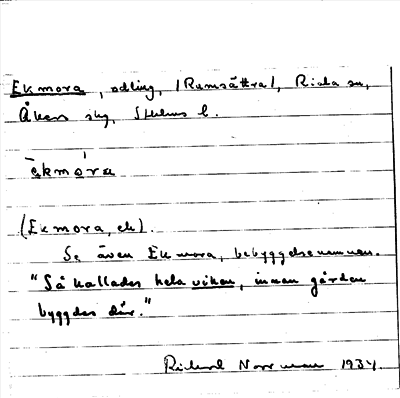 Ekmora, odling, /Rumsättra/, Riala sn,
Åkers skg, Sthlms l.
ēkmo̱ra
(Ekmora, ek).
Se även Ekmora, bebyggelsenamnen.
"Så kallades hela viken, innan gården
byggdes där."
Richard Norrman 1934.